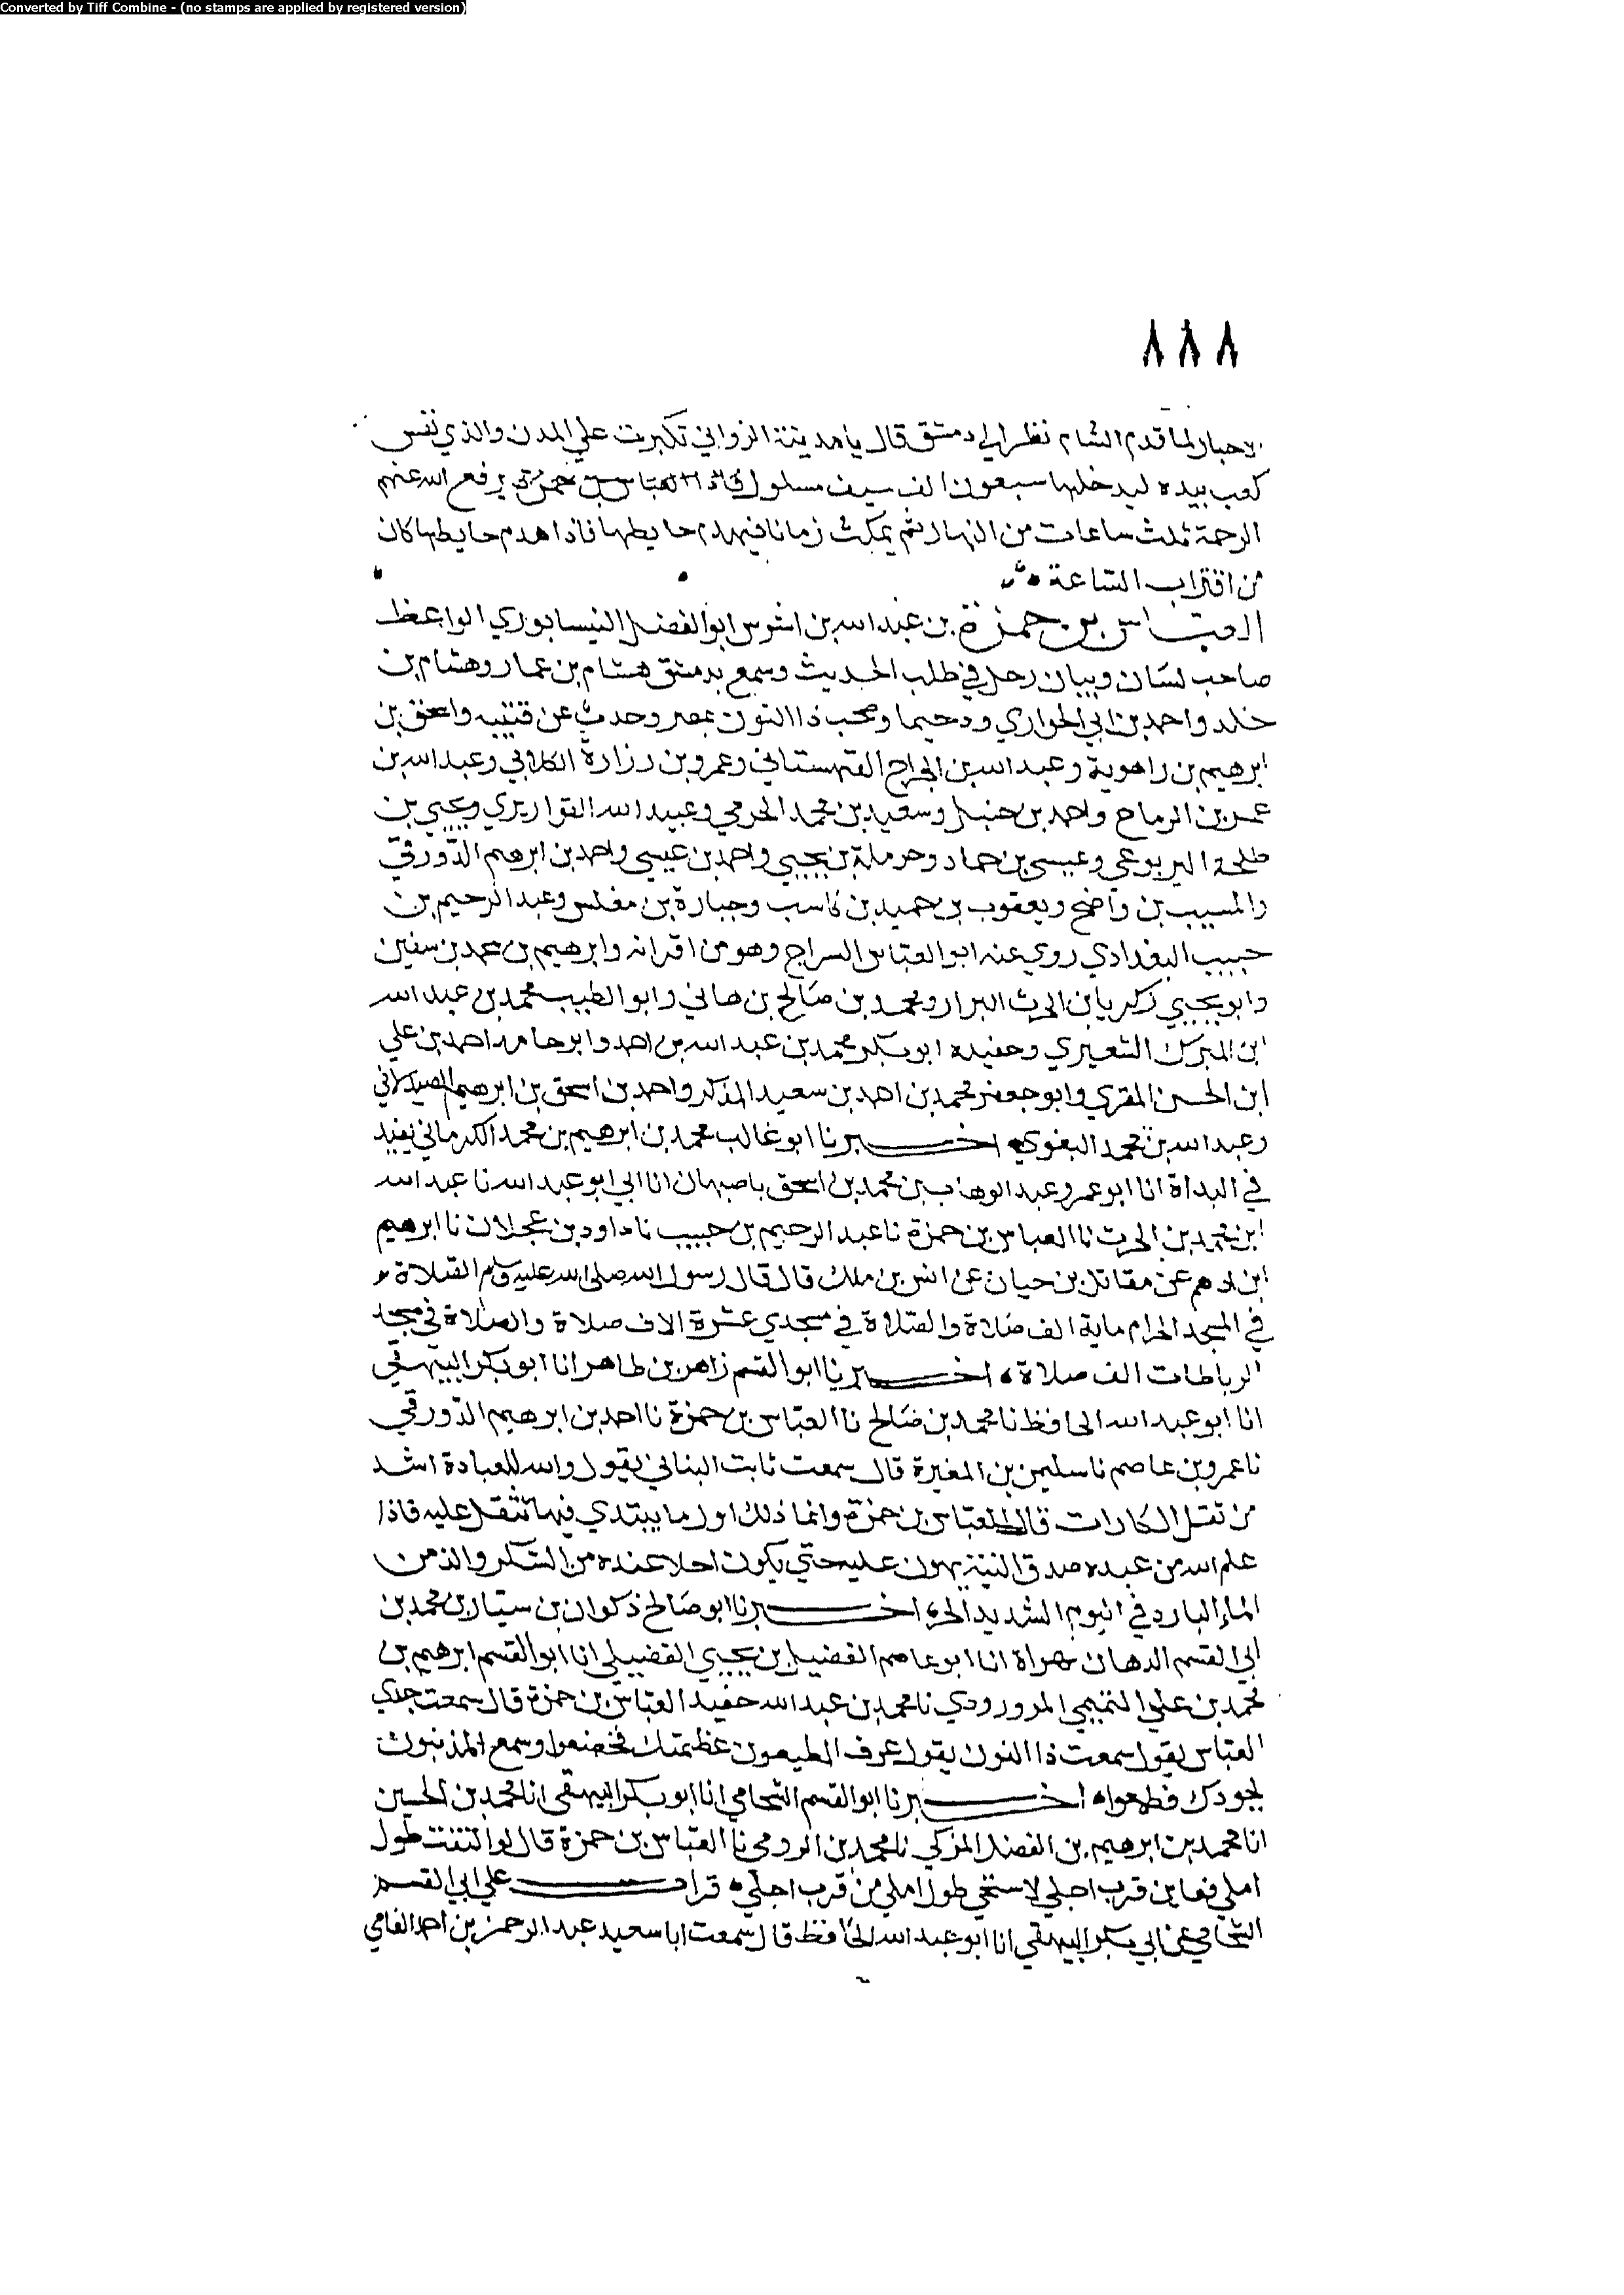 Converted by Tiff Combine - (no stamps are applied by registered version)
٨٨٨
الاحبار لما قدم الشام نظر الي دمشق قال يا مدينة الزواني تكبرت علي المدن والذي نفس
كعب بيده ليدخلها سبعون الف سيف مسلول العباس بن حمزة يرفع الله عنهم
الرحمة ثلث ساعات من النهار ثم يمكث زمانا فيهدم حايطها فاذا هدم حايطها كان
من اقتراب الساعة
العباس بن حمزة بن عبد الله بن اشوس ابو الفضل النيسابوري الواعظ
صاحب لسان وبيان رحل في طلب الحديث وسمع بدمشق هشام بن عمار وهشام بن
خلد واحمد بن ابي الحواري ودحيما وصحب ذا النون بمصر وحدث عن قتيبه واسحق بن
ابرهيم بن راهوية وعبد الله بن الجراح القهستاني وعمرو بن زرارة الكلابي وعبد الله بن
عمر بن الرماح واحمد بن حنبل وسعيد بن محمد الجرمي وعبيد الله القواريري ويحيي بن
طلحة اليربوعي وعيسي بن حماد وحرملة بن يحيي واحمد بن عيسي واحمد بن ابرهيم الدورقي
والمسيب بن واضح ويعقوب بن حميد بن كاسب وجبارة بن مغلس وعبد الرحيم بن
حبيب البغدادي روي عنه ابو العباس السراج وهو من اقرانه وابرهيم بن محمد بن سفين
وابو يحيي زكريا بن الحرث البزار ومحمد بن صالح بن هاني وابو الطيب محمد بن عبد الله
ابن المبرك الشعيري وحفيده ابو بكر محمد بن عبد الله بن احمد وابو حامد احمد بن علي
ابن الحسن المقري وابو جعفر محمد بن احمد بن سعيد المذكر واحمد بن اسحق بن ابرهيم الصيدلاني
وعبد الله بن محمد البغوي اخبرنا ابو غالب محمد بن ابرهيم بن محمد الكرماني بفيد
في البداة انا ابو عمرو عبد الوهاب بن محمد بن اسحق باصبهان انا ابي ابو عبد الله نا عبد الله
ابن محمد بن الحرث نا العباس بن حمزة نا عبد الرحيم بن حبيب نا داود بن عجلان نا ابرهيم
ابن ادهم عن مقاتل بن حيان عن انس بن ملك قال قال رسول الله صلى الله عليه وسلم الصلاة
في المسجد الحرام ماية الف صلاة والصلاة في مسجدي عشرة الاف صلاة والصلاة في مسجد
الرباطات الف صلاة اخبرنا ابو القسم زاهر بن طاهر انا ابو بكر البيهقي
انا ابو عبد الله الحافظ نا محمد بن صالح نا العباس بن حمزة نا احمد بن ابرهيم الدورقي
نا عمرو بن عاصم نا سليمن بن المغيرة قال سمعت ثابت البناني يقول والله للعبادة اشد
من نقل الكارات قال العباس بن حمزة وانما ذلك اول ما يبتدي فيها تثقل عليه فاذا
علم الله من عبده صدق النية يهون عليه حتي يكون احلا عنده من السكر والذ من
الماء البارد في اليوم الشديد الحر اخبرنا ابو صالح ذكوان بن سيار بن محمد بن
ابي القسم الدهان بهراة انا ابو عاصم الفضيل بن يحيي الفضيلي انا ابو القسم ابرهيم بن
محمد بن علي التميمي المروروذي نا محمد بن عبد الله حفيد العباس بن حمزة قال سمعت جدي
العباس يقول سمعت ذا النون يقول عرف المطيعون عظمتك فخضعوا وسمع المذنبون
بجودك فطمعوا اخبرنا ابو القسم الشحامي انا ابو بكر البيهقي انا محمد بن الحسين
انا محمد بن ابرهيم بن الفضل المزكي نا محمد بن الرومي نا العباس بن حمزة قال لو التفتت طول
املي فعاين قرب اجلي لاستحي طول املي من قرب اجلي قرات علي ابي القسم
الشحامي عن ابي بكر البيهقي انا ابو عبد الله الحافظ قال سمعت ابا سعيد عبد الرحمن بن احمد الفامي